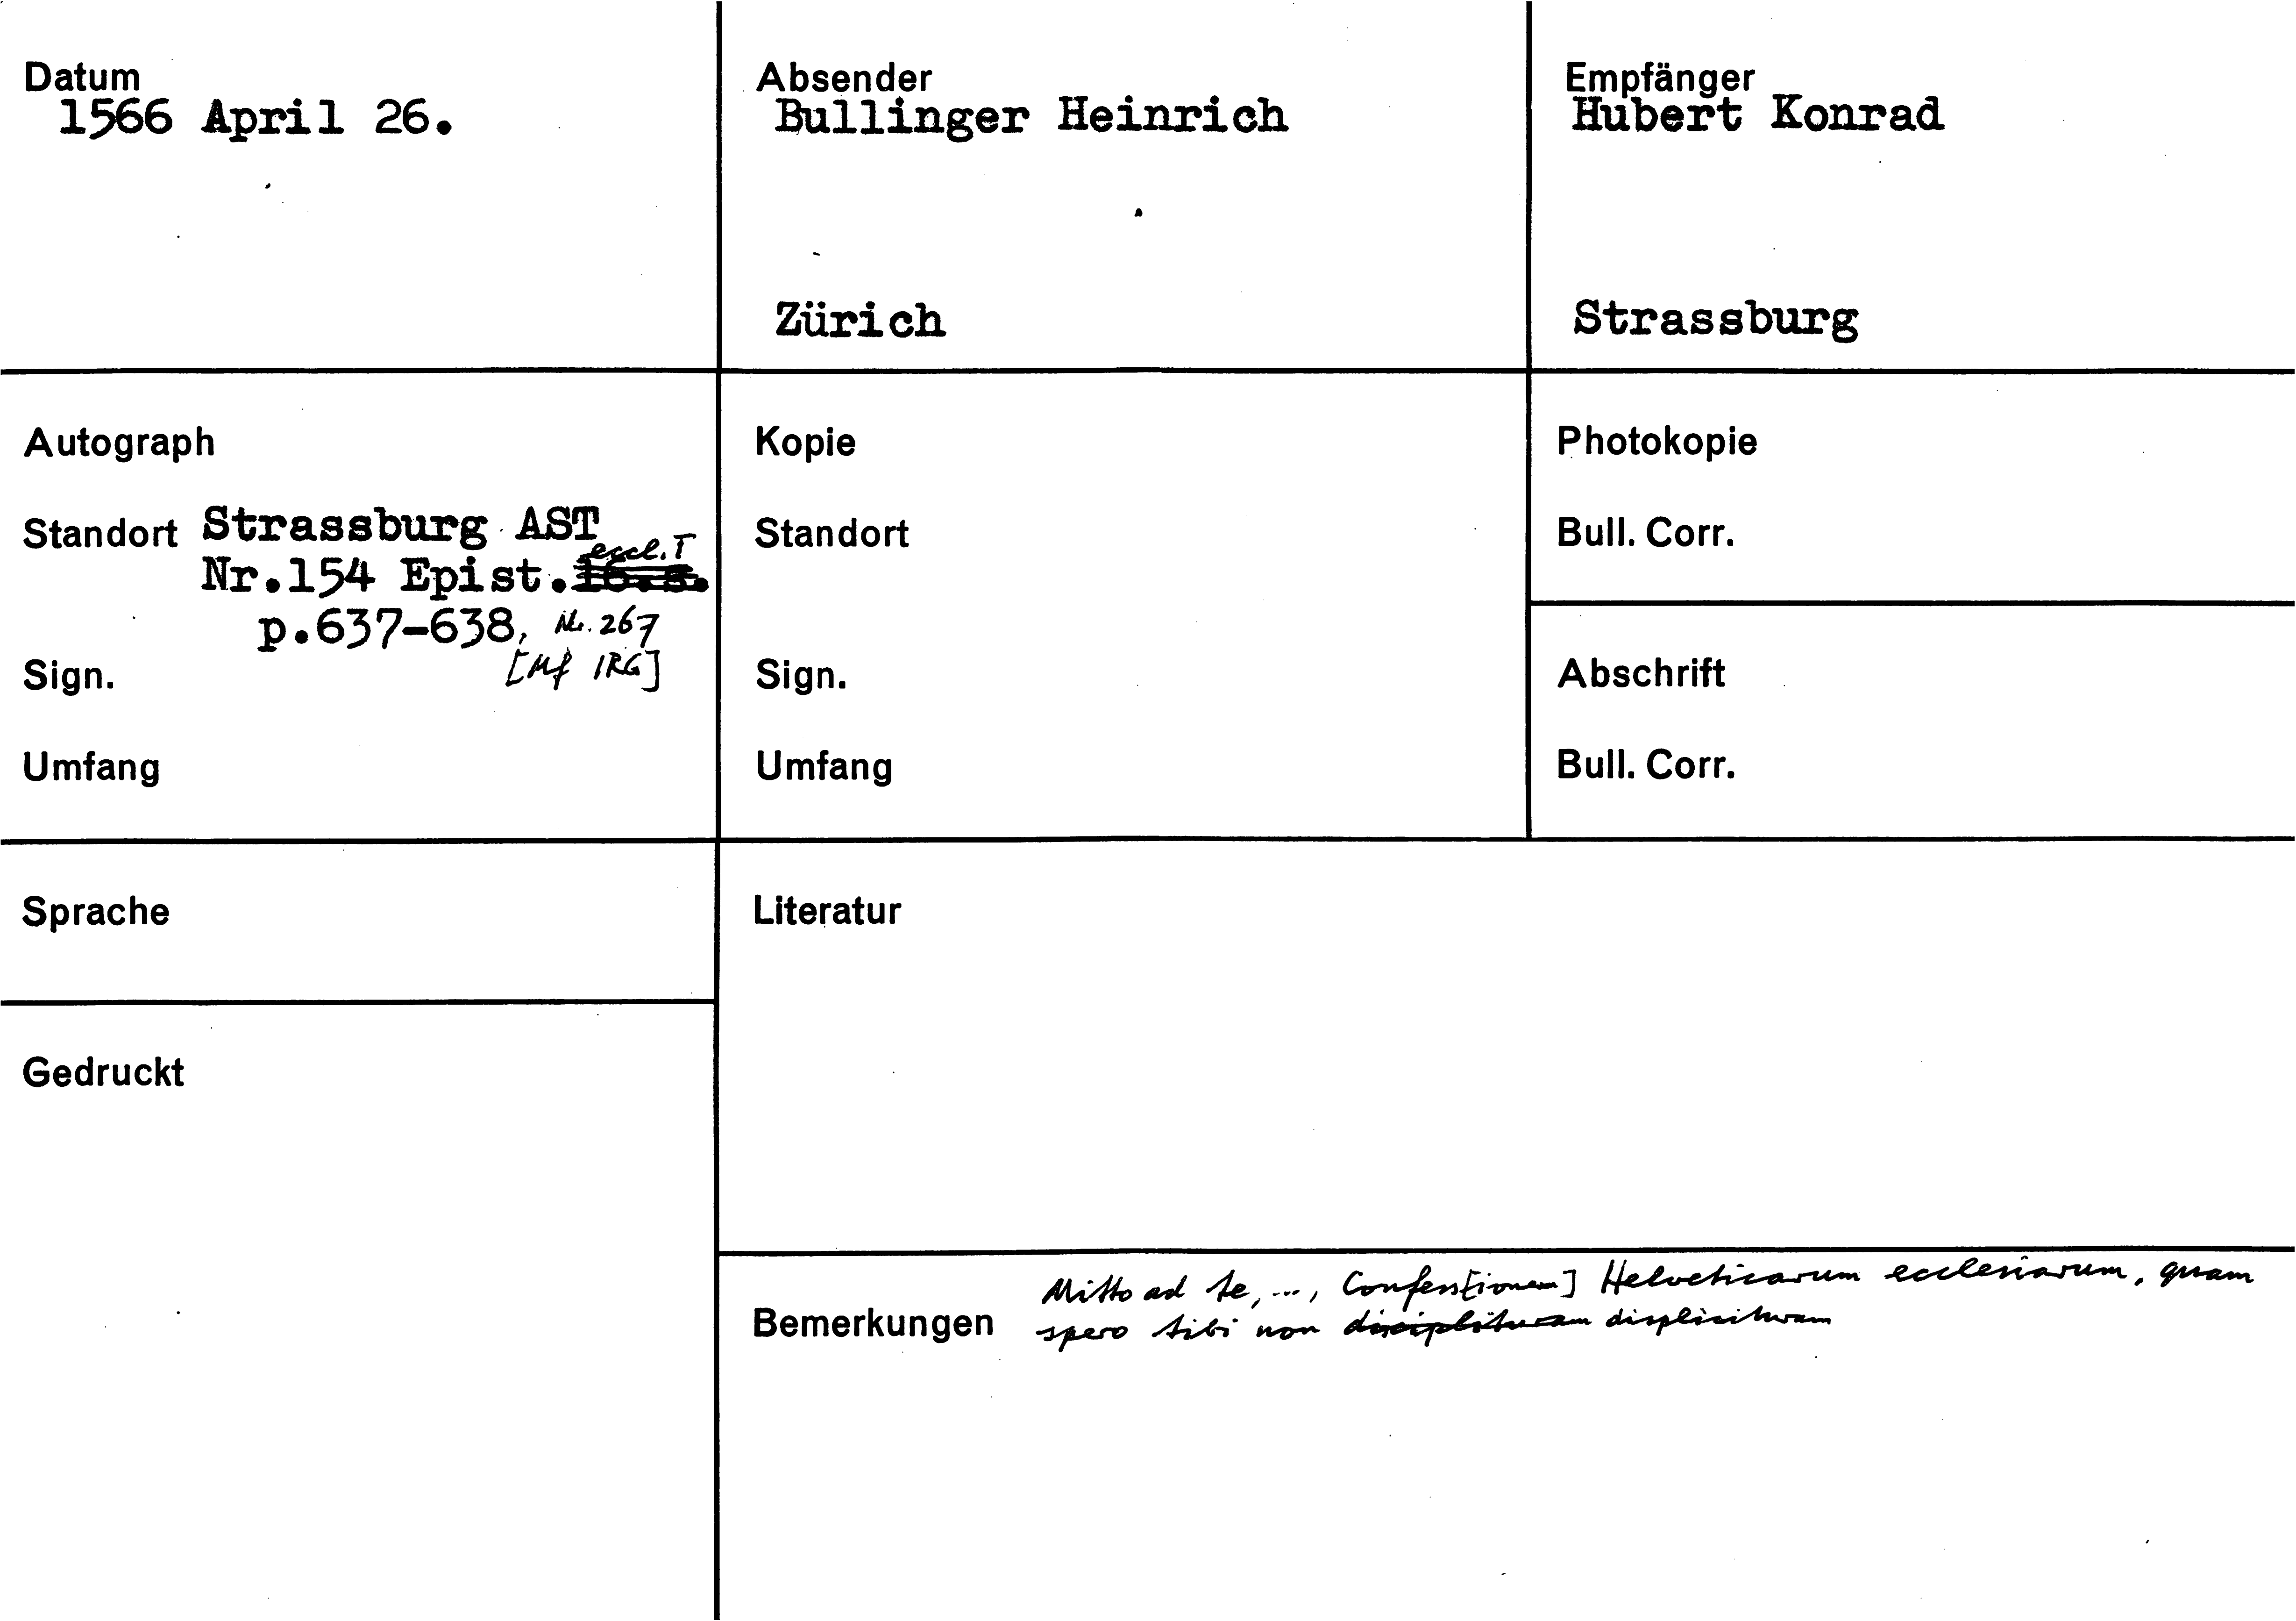 Datum
1566 April 26.
Absender
Bullinger Heinrich
Zürich
Empfänger
Hubert Konrad
Strassburg
Autograph
Standort Strassburg AST
eccl. I
Nr.154 Epist.
p.637-638, Nr. 267
[Mf IRG]
Sign.
Umfang
Kopie
Standort
Sign.
Umfang
Photokopie
Bull. Corr.
Abschrift
Bull. Corr.
Sprache
Gedruckt
Literatur
Bemerkungen
Mitto ad te, ..., Confess[ionem] Helveticarum ecclesiarum, quam
spero tibi non displicituram